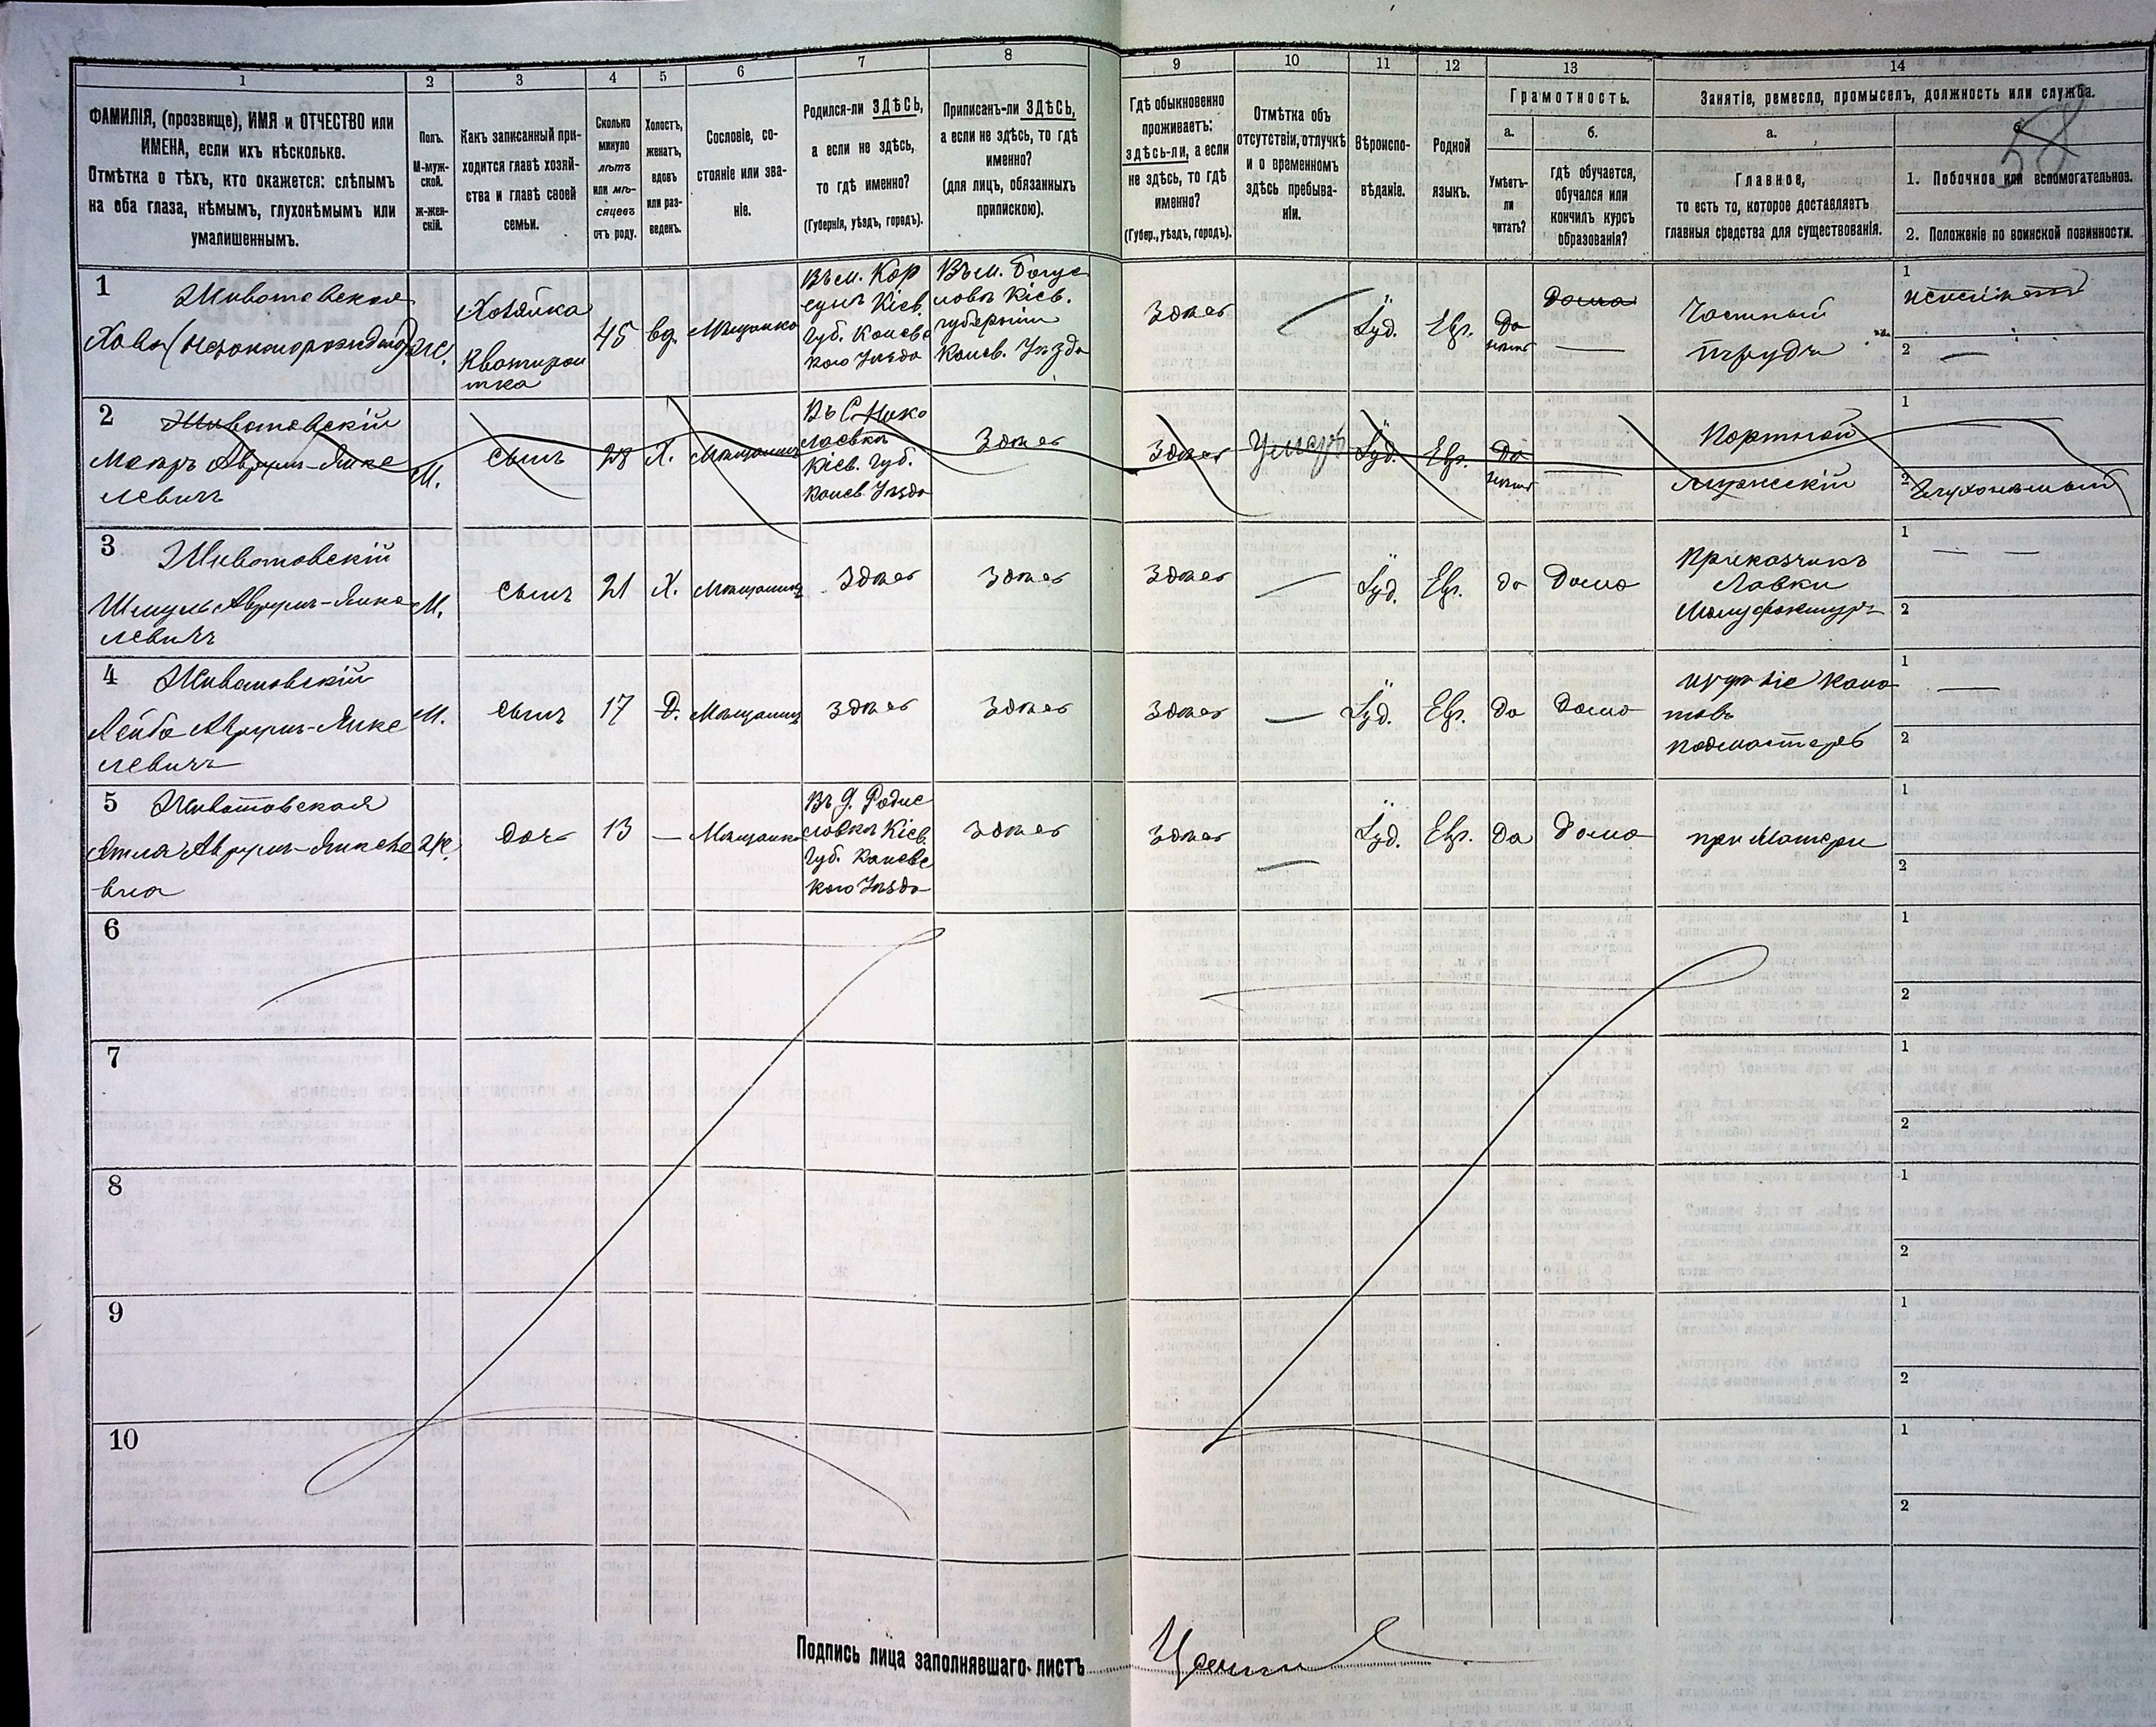 1 2 3 4 5 6 7 8 9 10 11 12 13 14
ФАМИЛІЯ, (прозвище), ИМЯ и ОТЧЕСТВО или
ИМЕНА, если ихъ нѣсколько.
Отмѣтка о тѣхъ, кто окажется: слѣпымъ
на оба глаза, нѣмымъ, глухонѣмымъ или
умалишеннымъ.
Полъ.
М-муж-
ской.
Ж-жен-
скій.
Какъ записанный при-
ходится главѣ хозяй-
ства и главѣ своей
семьи.
Сколько
минуло
лѣтъ
или мѣ-
сяцевъ
отъ роду.
Холостъ,
женатъ,
вдовъ
или раз-
веденъ.
Сословіе, со-
стояніе или зва-
ніе.
Родился-ли ЗДѢСЬ,
а если не здѣсь,
то гдѣ именно?
(Губернія, уѣздъ, городъ).
Приписанъ-ли ЗДѢСЬ,
а если не здѣсь, то гдѣ
именно?
(для лицъ, обязанныхъ
припискою).
Гдѣ обыкновенно
проживаетъ:
здѣсь-ли, а если
не здѣсь, то гдѣ
именно?
(Губер., уѣздъ, городъ).
Отмѣтка объ
отсутствіи, отлучкѣ
и о временномъ
здѣсь пребыва-
ніи.
Вѣроиспо-
вѣданіе.
Родной
языкъ.
Грамотность.
а.
Умѣетъ-
ли
читать?
б.
гдѣ обучается,
обучался или
кончилъ курсъ
образованія?
Занятіе, ремесло, промыселъ, должность или служба.
а.
Главное,
то есть то, которое доставляетъ
главныя средства для существованія.
58
1. Побочное или вспомогательное.
2. Положеніе по воинской повинности.
1
Животовская
Хава
Ж.
Хозяйка
Квартиран
тка
45
вд.
Мѣщанка
Въ м. Кор
сунь Кіев.
Губ. Каневс
каго Уѣзда
Въ м. Богус
лавъ Кіев.
губерніи
Канев. Уѣзда
Здѣсь
Іуд.
Евр.
Да
Дома
Частный
трудъ
1
2
2
Животовскій
Мееръ Аврумъ-Янке
левичъ
М.
сынъ
28
Х.
Мѣщанинъ
Въ С. Нико
лаевка
Кіев. Губ.
Канев. Уѣзда
Здѣсь
Здѣсь
Умеръ
Іуд.
Евр.
Да
Портной
мужескій
1
2 Глухонѣмый
3
Животовскій
Шмуль Аврумъ-Янке
левичъ
М.
сынъ
21
Х.
Мѣщанинъ
Здѣсь
Здѣсь
Здѣсь
Іуд.
Евр.
да
Дома
Приказчикъ
Лавки
Мануфактур
1
2
4
Животовскій
Лейба Аврумъ-Янке
левичъ
М.
сынъ
17
Мѣщанинъ
Здѣсь
Здѣсь
Здѣсь
Іуд.
Евр.
да
Дома
подмастеръ
1
2
5
Животовская
Этля Аврумъ-Янкеле
вна
Ж.
дочь
13
Мѣщанка
Кіев.
Губ. Каневс
каго Уѣзда
Здѣсь
Здѣсь
Іуд.
Евр.
Да
Дома
при Матери
1
2
6
1
2
7
1
2
8
1
2
9
1
2
10
1
2
Подпись лица заполнявшаго листъ